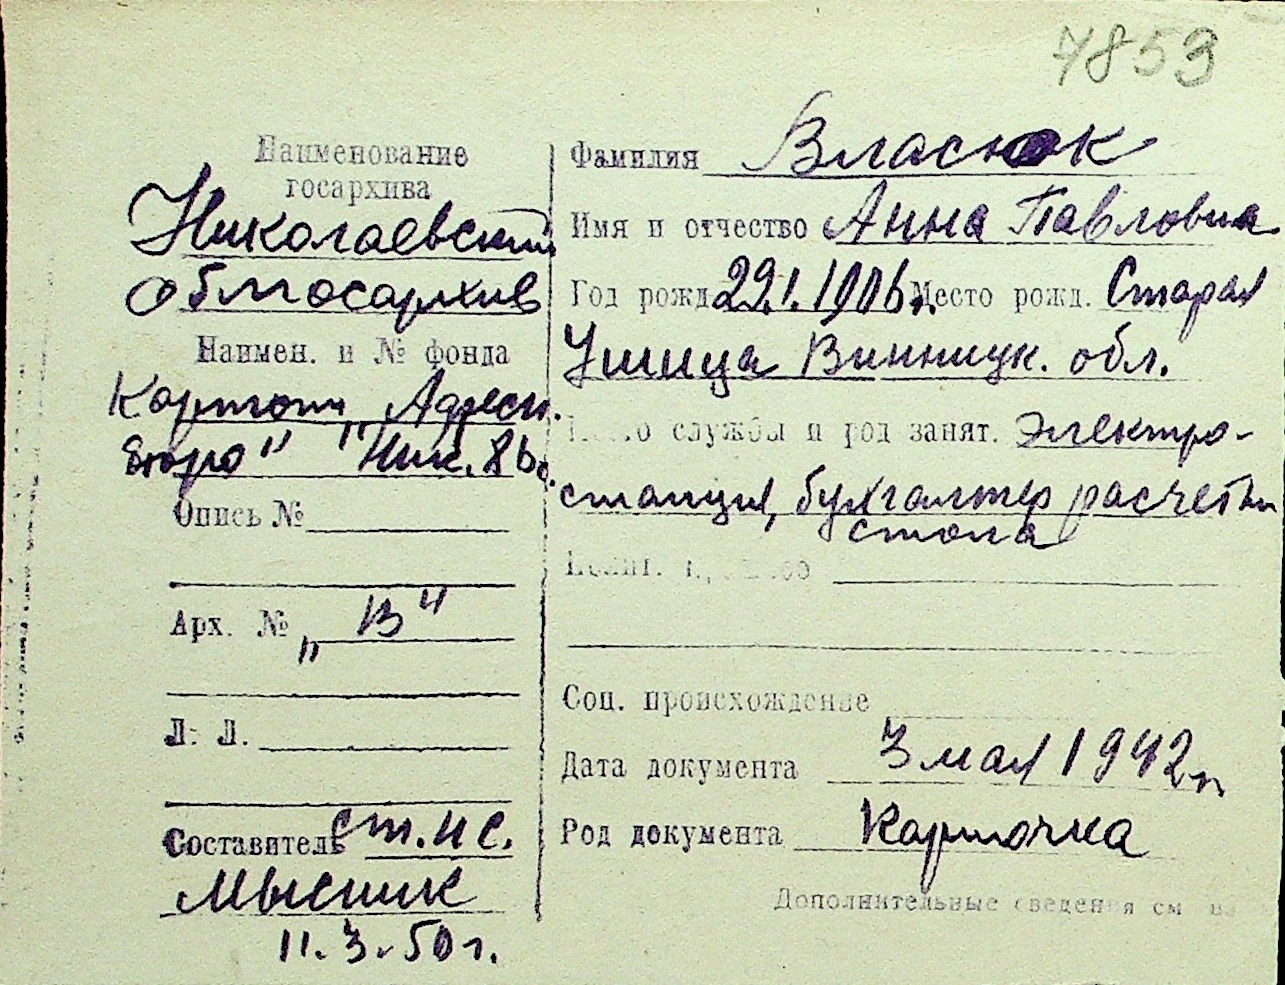 7853
Наименование
госархива
Николаевский
облгосархив
Наимен. и № фонда
Картот. „Адресн.
бюро" "Ник.
Опись №
Арх. № „В"
Л. Л.
Составитель ст. н с.
Мысник
11.3.50 г.
Фамилия Власюк
Имя и отчество Анна Павловна
Год рожд. 29.1.1906 г. Место рожд. Старая
Ушица Винницк. обл.
службы и род занят. Электро-
станция, бухгалтер расчетн
стола
Соц. происхождение
Дата документа 3 мая 1942 г.
Род документа Карточка
Дополнительные сведения см на